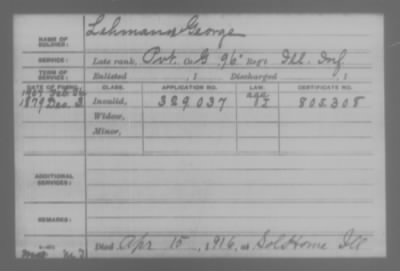 NAME OF SOLDIER: Lehmann George
SERVICE: Late rank, Pvt. Co G, 96" Reg't Ill. Inf.
TERM OF SERVICE: Enlisted , 1 Discharged , 1
DATE OF FILING. CLASS. APPLICATION NO. LAW. CERTIFICATE NO.
1907 Feb
1879 Dec. 3 Invalid, 329,037 805,308
Widow,
Minor,
ADDITIONAL SERVICES:
REMARKS:
Died Apr 15, 1916, at Sol Home Ill